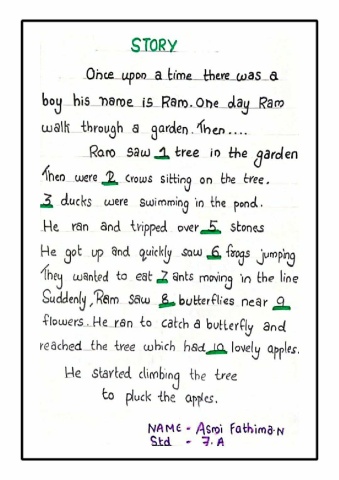 STORY
Once upon a time there was a
boy his name is Ram. One day Ram
walk through a garden. Then....
Ram saw 1 tree in the garden
Then were 2 crows sitting on the tree.
3 ducks were swimming in the pond.
He ran and tripped over 5 stones
He got up and quickly saw 6 frogs jumping
They wanted to eat 7 ants moving in the line
Suddenly, Ram saw 8 butterflies near 9
flowers. He ran to catch a butterfly and
reached the tree which had 10 lovely apples.
He started climbing the tree
to pluck the apples.
NAME - Asmi Fathima.N
Std - 7.A